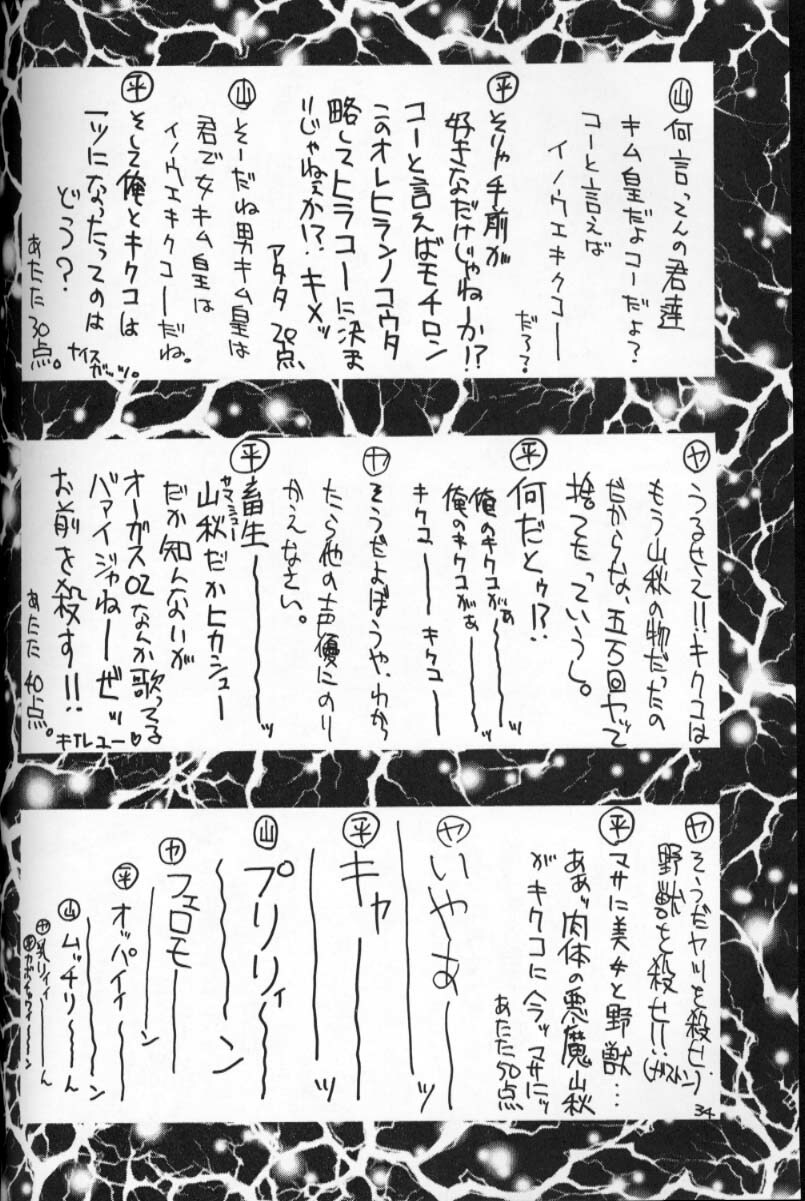 ㊤山 何言ってんの君達
キム皇だよコーだよ?
コーと言えば
イノウエキクコー
だろ?
㊥平 そりゃ手前が
好きなだけじゃねーか!?
コーと言えばモチロン
このオレヒラノコウタ
略してヒラコーに決ま
りじゃねぇか!?キメッ
アタタ 20点、
山 そーだね男キム皇は
君で女キム皇は
イノウエキクコーだね。
平 そして俺とキクコは
一ツになったってのは
どう?
ナイスガッツ。
あたた 30点。
ヤ うるせえ!!キクコは
もう山秋の物だったの
だからな、五万回ヤッて
捨てたっていうし。
平 何だとゥ!?
俺のキクコがぁ〜〜ッ
俺のキクコがぁ〜〜ッ
キクコーー キクコーー
ヤ そうだよぼうや、わかっ
たら他の声優にのり
かえなさい。
平 畜生〜〜〜ッ
山秋だかヒカシュー
ヤマシュー
だか知んないが
オーガス02なんか歌ってる
バァイジャねーぜッ
お前を殺す!!
キルユー♡
あたた 40点。
ヤ そうだヤツを殺せ、
野獣を殺せ!!
(ガストン)
平 マサに美女と野獣…
ああッ肉体の悪魔山秋
がキクコに今ッマサにッ
あたた50点
ヤ いやあーーーッ
平 キャーー〜〜ッ
山 プリリィ〜〜〜ン
ヤ フェロモーーン
平 オッパイィ〜〜ン
山 ムッチリ〜〜ん
34